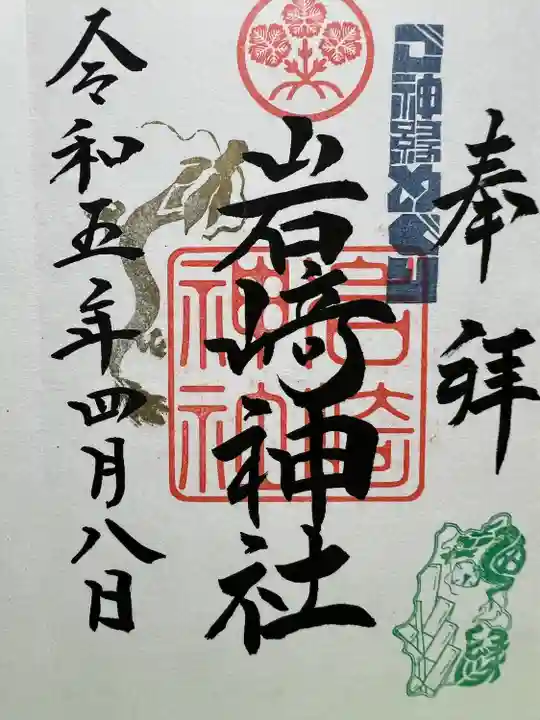 奉拝
岩崎神社
令和五年四月八日
岩崎
神社